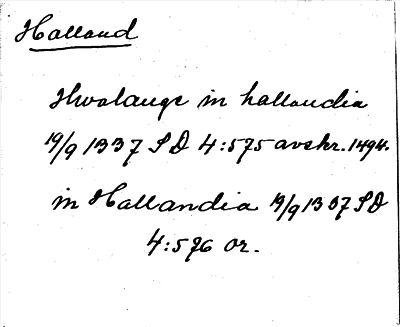 Halland
Hwalange in hallandia
19/9 1337 SD 4:575 avskr. 1494.
in Hallandia 19/9 1337 SD
4:576 or.